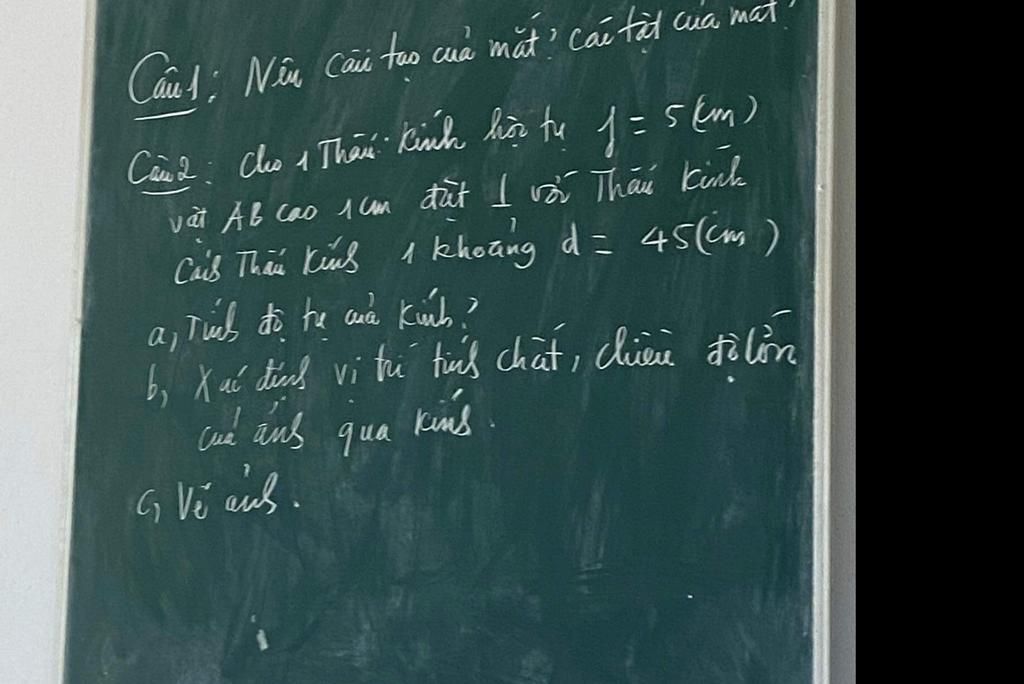 Câu 1: Nêu cấu tạo của mắt? các tật của mắt?
Câu 2: Cho 1 Thấu kính hội tụ f = 5 (cm)
vật AB cao 1 cm đặt ⊥ với Thấu kính
Cách Thấu kính 1 khoảng d = 45 (cm)
a, Tính độ tụ của kính?
b, Xác định vị trí tính chất, chiều độ lớn
của ảnh qua kính.
c, Vẽ ảnh.